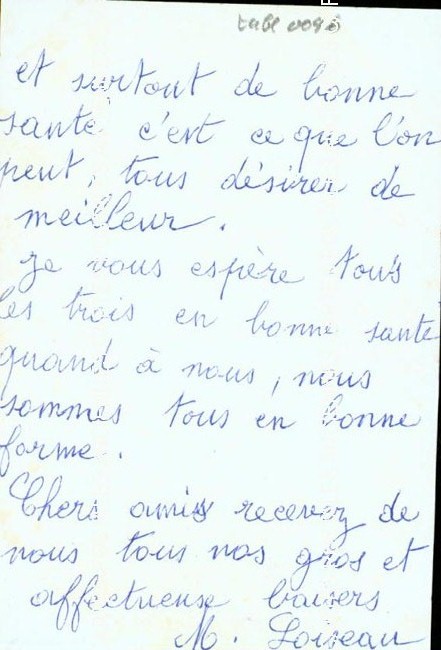 et surtout de bonne
santé c'est ce que l'on
peut, tous désirer de
meilleur.
Je vous espère tous
les trois en bonne santé
quand à nous, nous
sommes tous en bonne
forme.
Chers amis recevez de
nous tous nos gros et
affectueuse baisers
M. Loiseau